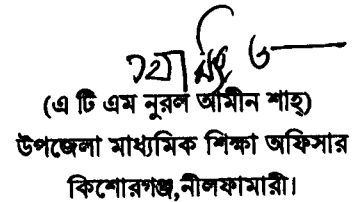 (এ টি এম নুরল আমীন শাহ্)
উপজেলা মাধ্যমিক শিক্ষা অফিসার
কিশোরগঞ্জ,নীলফামারী।